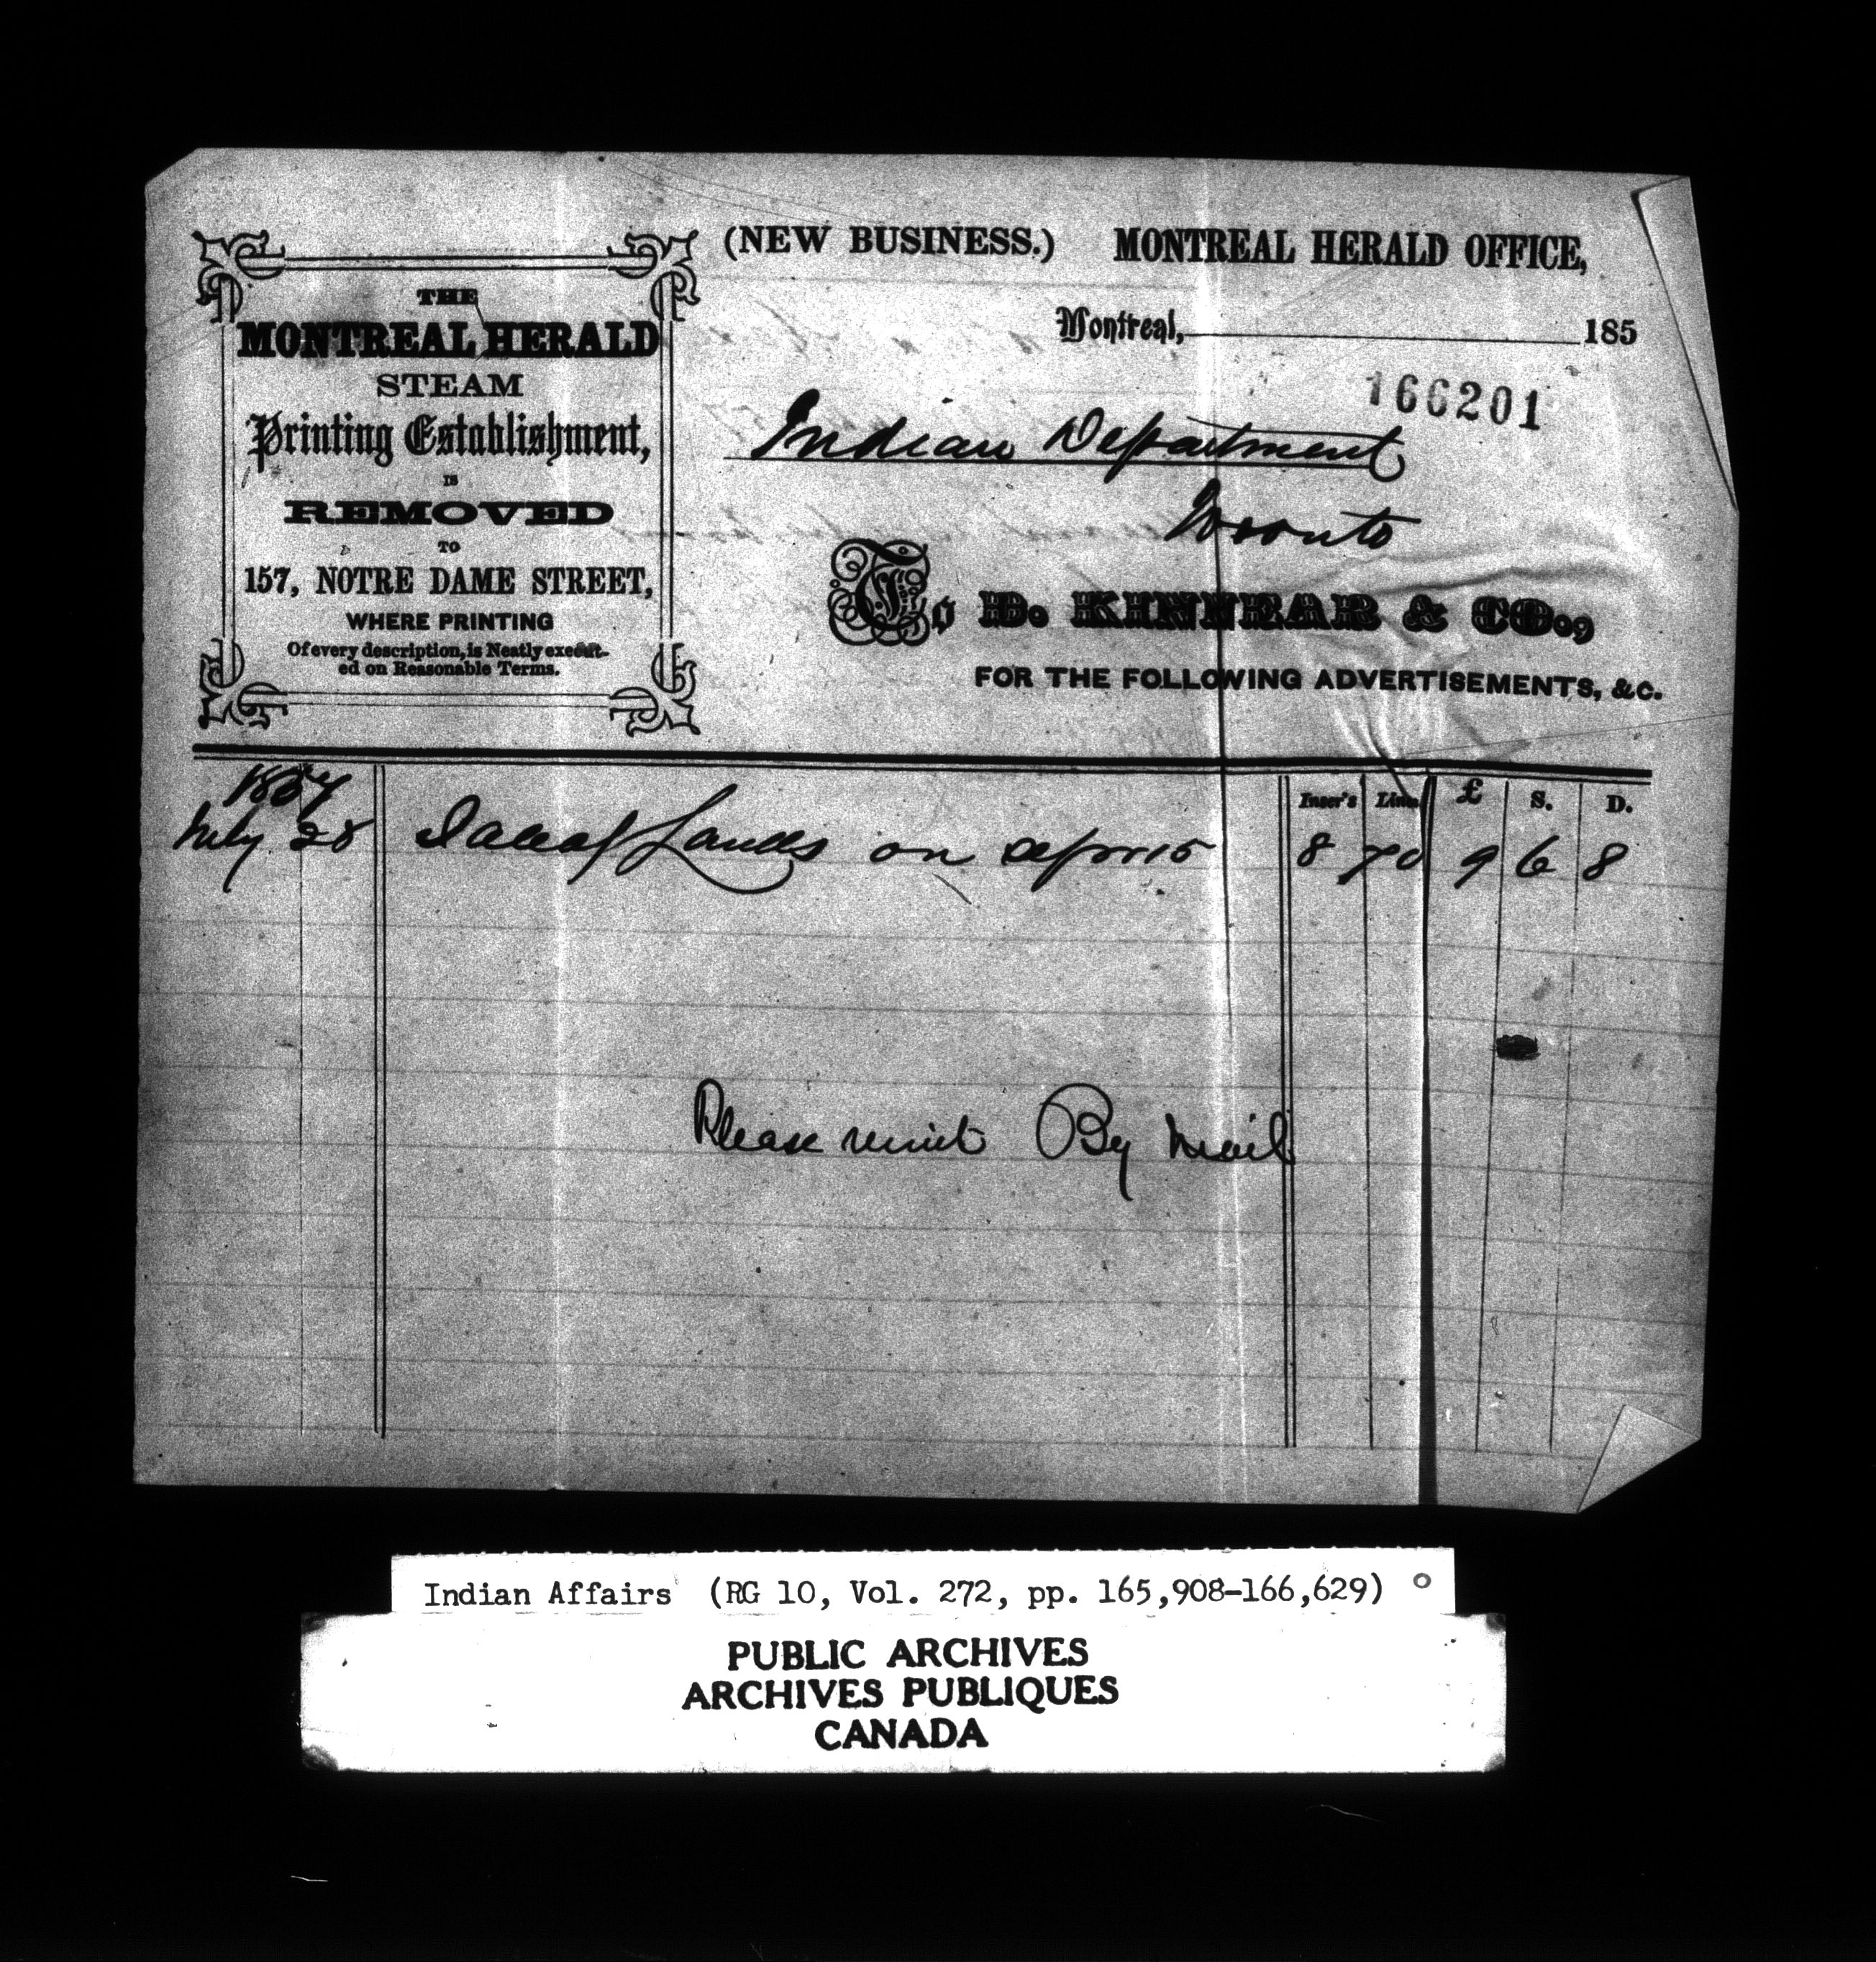 (NEW BUSINESS.) MONTREAL HERALD OFFICE,
Montreal, 185
166201
THE
MONTREAL HERALD
STEAM
Printing Establishment,
IS
REMOVED
TO
157, NOTRE DAME STREET,
WHERE PRINTING
Of every description, is Neatly execut-
ed on Reasonable Terms.
Indian Department
Toronto
To D. KINNEAR & CO.,
FOR THE FOLLOWING ADVERTISEMENTS, &C.
Inser's Lines £ S. D.
1857
July 28 Sale of Lands on 8 70 9 6 8
Please remit By Mail
Indian Affairs (RG 10, Vol. 272, pp. 165,908-166,629)
PUBLIC ARCHIVES
ARCHIVES PUBLIQUES
CANADA